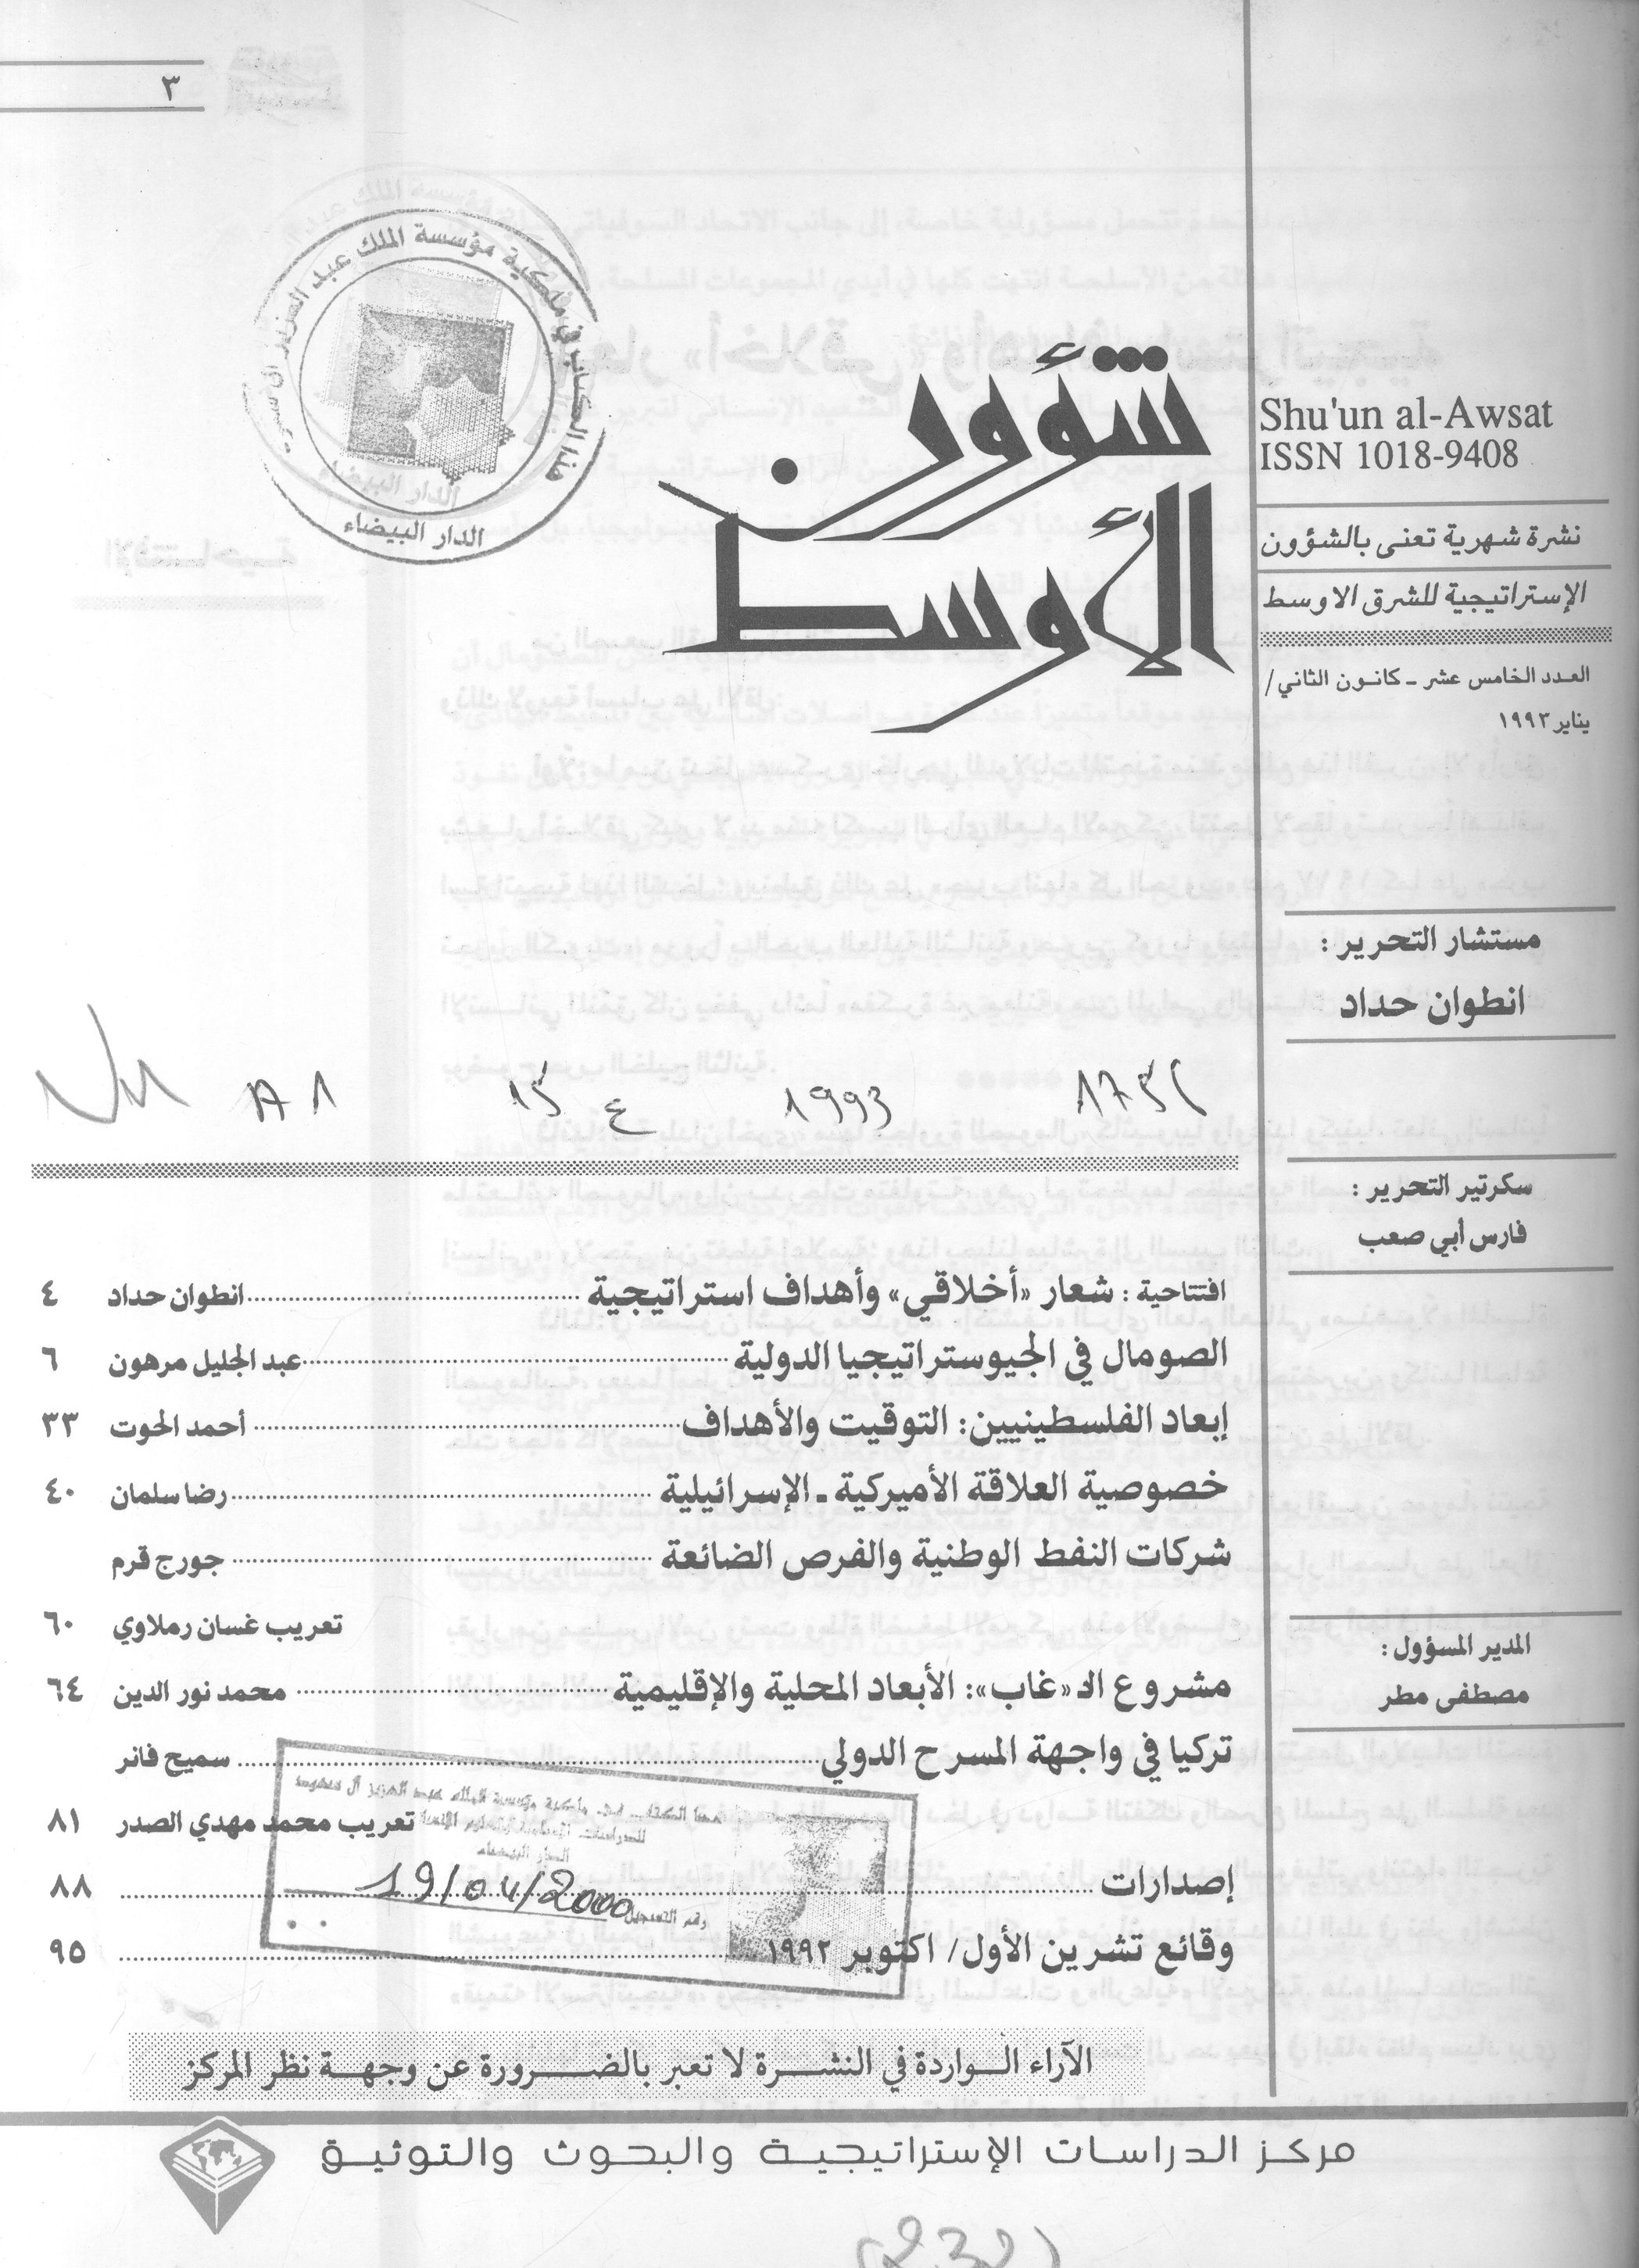 ٣
هذا الكتاب في ملكية مؤسسة الملك عبد العزيز آل سعود
الدار البيضاء
شؤون
الأوسط
Shu'un al-Awsat
ISSN 1018-9408
نشرة شهرية تعنى بالشؤون
الإستراتيجية للشرق الاوسط
العدد الخامس عشر - كانون الثاني/
يناير ١٩٩٣
مستشار التحرير :
انطوان حداد
سكرتير التحرير :
فارس أبي صعب
المدير المسؤول :
مصطفى مطر
1993
ع 15
افتتاحية : شعار «أخلاقي» وأهداف استراتيجية انطوان حداد ٤
الصومال في الجيوستراتيجيا الدولية عبد الجليل مرهون ٦
إبعاد الفلسطينيين: التوقيت والأهداف أحمد الحوت ٣٣
خصوصية العلاقة الأميركية ـ الإسرائيلية رضا سلمان ٤٠
شركات النفط الوطنية والفرص الضائعة جورج قرم
تعريب غسان رملاوي ٦٠
مشروع الـ«غاب»: الأبعاد المحلية والإقليمية محمد نور الدين ٦٤
تركيا في واجهة المسرح الدولي سميح فانر
تعريب محمد مهدي الصدر ٨١
إصدارات ٨٨
وقائع تشرين الأول/ اكتوبر ١٩٩٢ ٩٥
رقم التسجيل
19/04/2000
الآراء الـواردة في النشرة لا تعبر بالضـرورة عن وجهـة نظر المركز
مركز الدراسات الإستراتيجية والبحوث والتوثيق